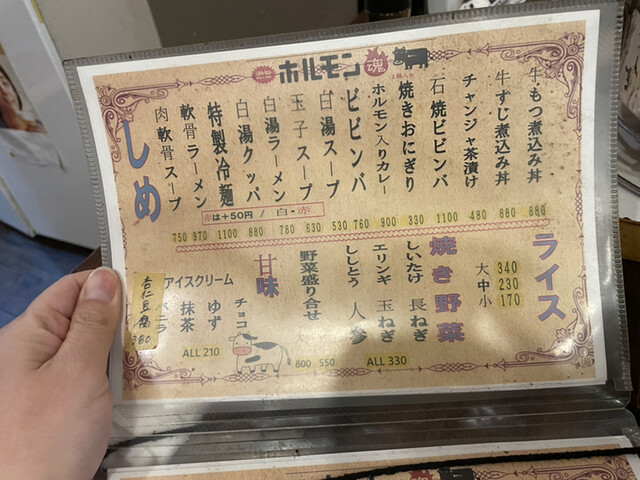 ホルモン魂
牛もつ煮込み丼
牛すじ煮込み丼
チャンジャ茶漬け
石焼ビビンバ
焼きおにぎり
ホルモン入りカレー
ビビンバ
白湯スープ
玉子スープ
白湯ラーメン
白湯クッパ
特製冷麺
軟骨ラーメン
肉軟骨スープ
しめ
赤は+50円 / 白・赤
750 970 1100 880 780 630 530 760 900 330 1100 480 880 880
ライス
大 340
中 230
小 170
焼き野菜
しいたけ 長ねぎ
エリンギ 玉ねぎ
ししとう 人参
ALL 330
野菜盛り合せ
800 550
甘味
アイスクリーム
チョコ
ゆず
抹茶
バニラ
ALL 210
杏仁豆腐
380